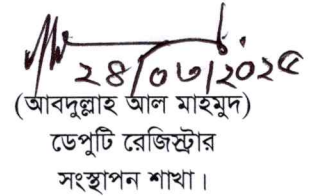 ২৪/০৩/২০২৫
(আবদুল্লাহ আল মাহমুদ)
ডেপুটি রেজিস্ট্রার
সংস্থাপন শাখা।